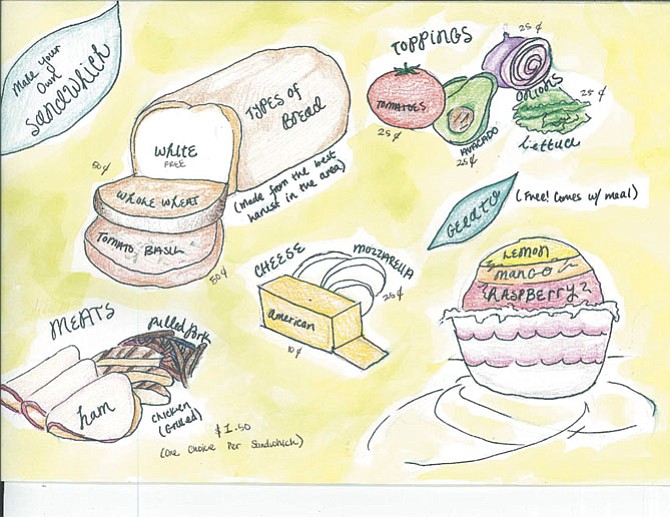 Make Your
Own
Sandwhich
TYPES OF
BREAD
WHITE
FREE
50¢
WHOLE WHEAT
TOMATO BASIL
50¢
(Made from the best
harvest in the area)
TOPPINGS
TOMATOES
25¢
AVACADO
25¢
25¢
ONIONS
25¢
Lettuce
Gelato
(Free! Comes w/ meal)
LEMON
MANGO
RASPBERRY
CHEESE
MOZZARELLA
25¢
american
10¢
MEATS
Pulled Pork
ham
Chicken
(Grilled)
$1.50
(One Choice Per Sandwhich)